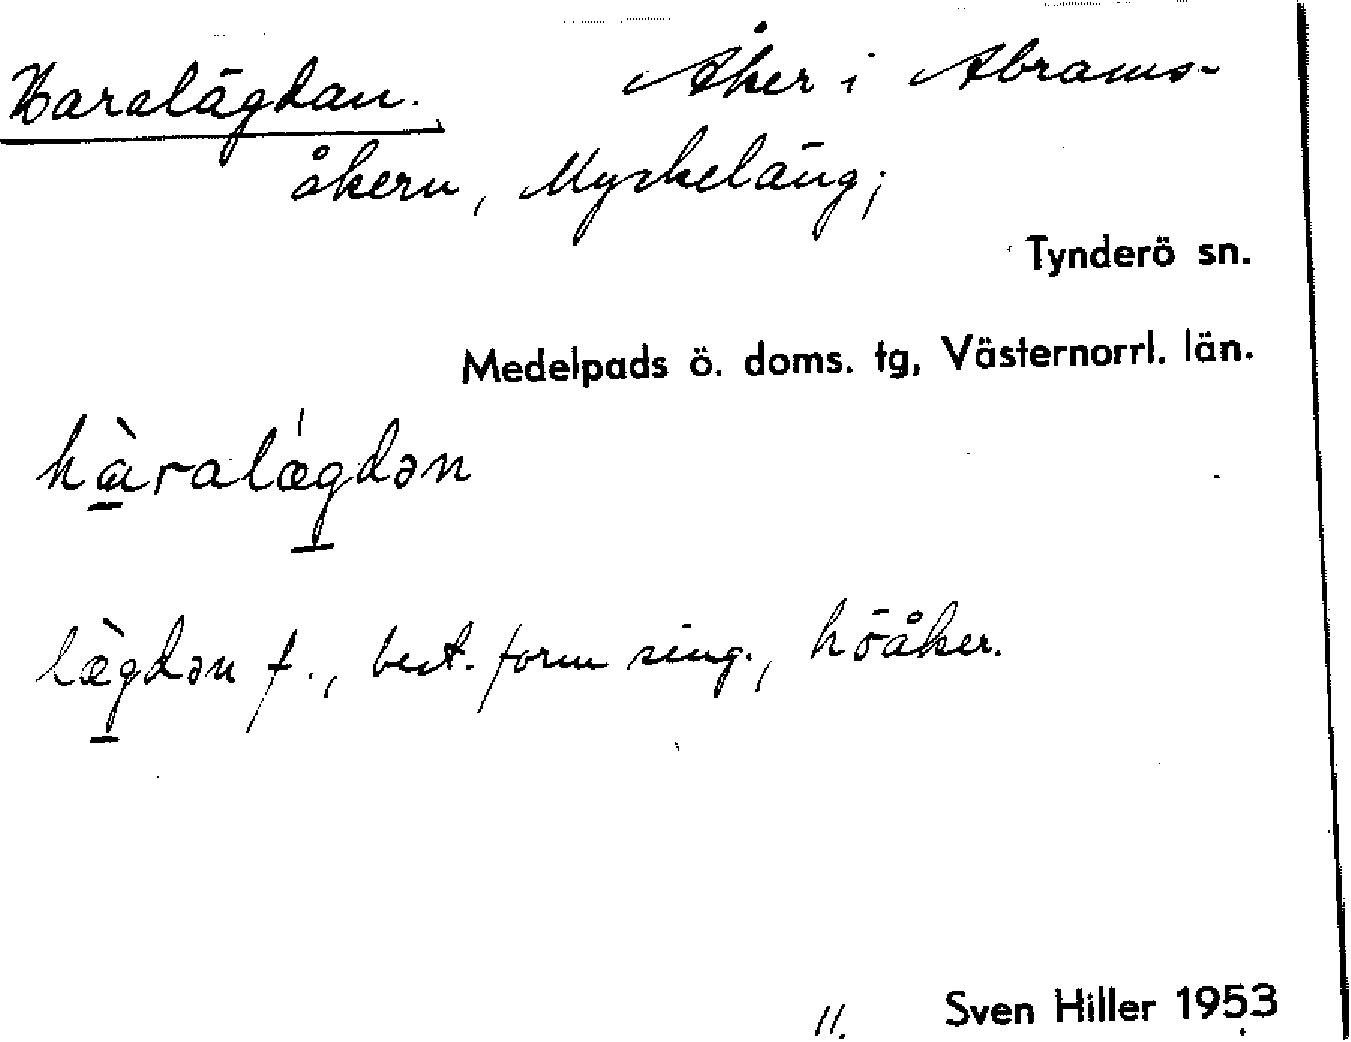 Haralägdan. Åker i Abrams-
åkern, Myckeläng;
Tynderö sn.
Medelpads ö. doms. tg, Västernorrl. län.
hàralægdən
lægdən f., best. form sing., höåker.
11. Sven Hiller 1953